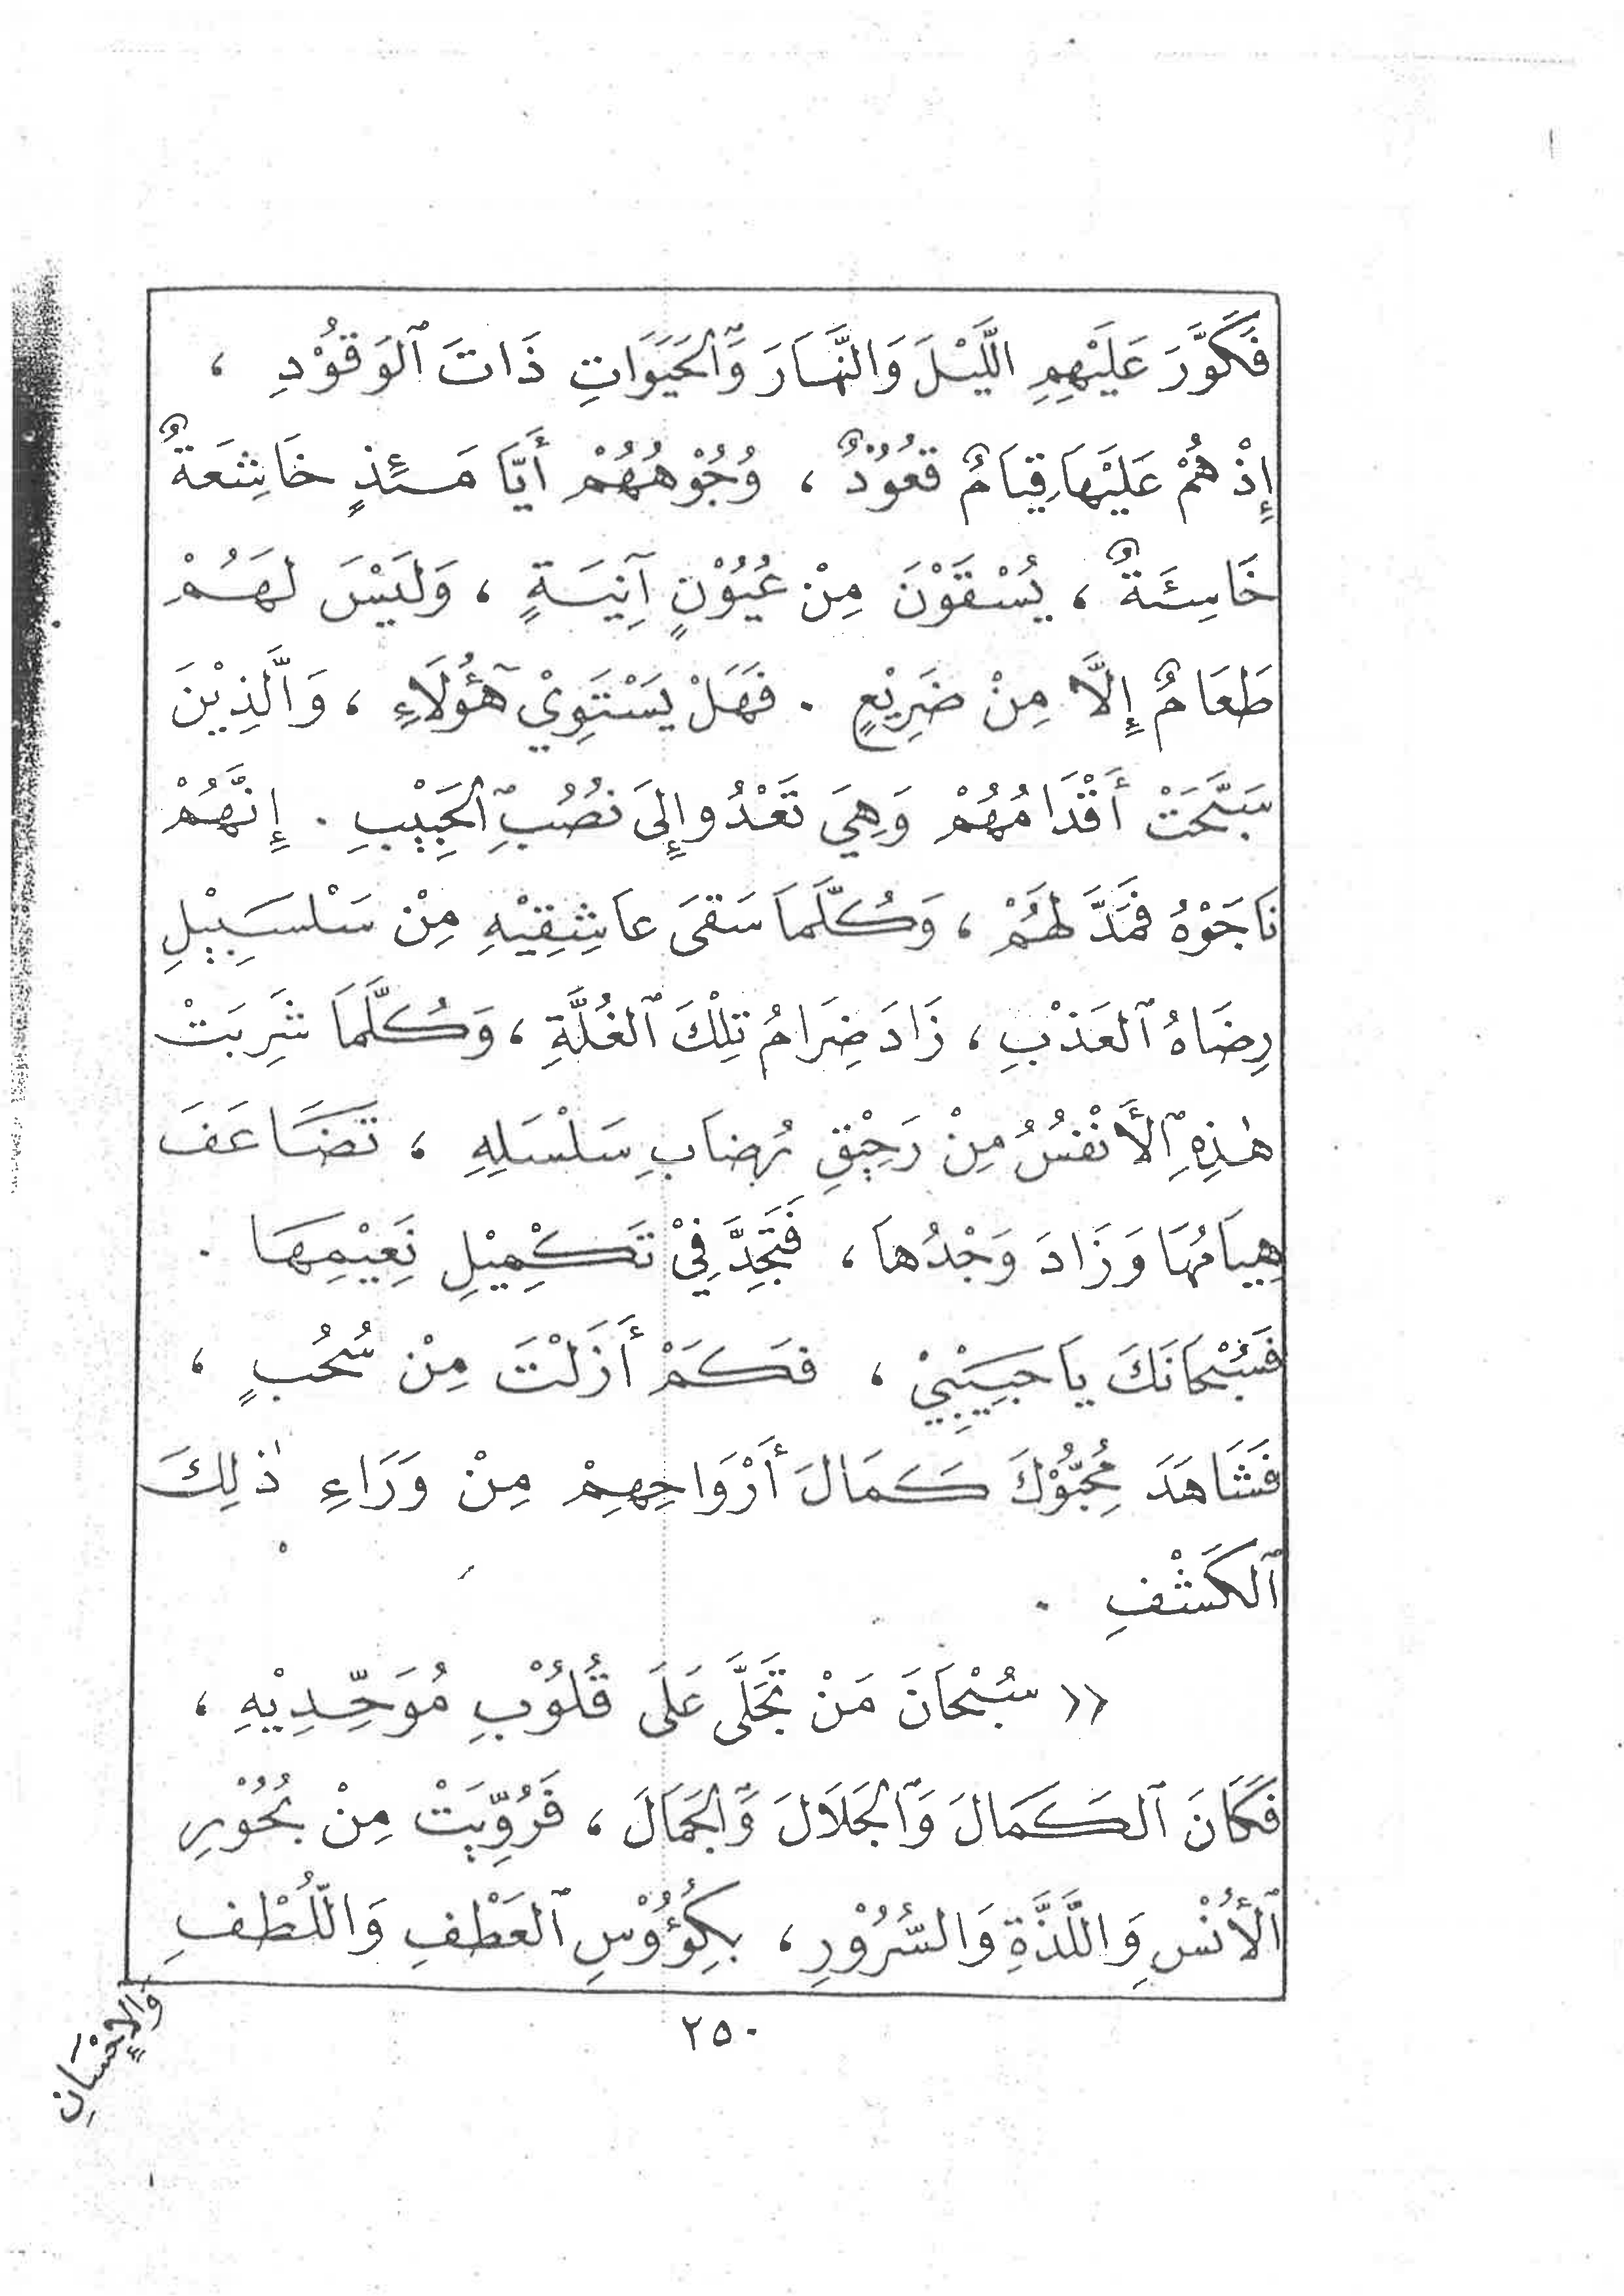 فَكَوَّرَ عَلَيْهِمِ اللَّيْلَ وَالنَّهَارَ وَٱلحَيَوَاتِ ذَاتَ ٱلوَقُوْدِ ،
إِذْ هُمْ عَلَيْهَا قِيَامٌ قُعُوْدٌ ، وُجُوْهُهُمْ أَيَّامَئِذٍ خَاشِعَةٌ
خَاسِئَةٌ ، يُسْقَوْنَ مِنْ عُيُوْنٍ آنِيَةٍ ، وَلَيْسَ لَهُمْ
طَعَامٌ إِلَّا مِنْ ضَرِيْعٍ . فَهَلْ يَسْتَوِيْ هَٓؤُلَاءِ ، وَالَّذِيْنَ
سَبَّحَتْ أَقْدَامُهُمْ وَهِيَ تَعْدُو إِلَى نُصُبِ ٱلحَبِيْبِ . إِنَّهُمْ
نَاجَوْهُ فَمَدَّ لَهُمْ ، وَكُلَّمَا سَقَى عَاشِقِيْهِ مِنْ سَلْسَبِيْلِ
رِضَاهُ ٱلعَذْبِ ، زَادَ ضِرَامُ تِلْكَ ٱلغُلَّةِ ، وَكُلَّمَا شَرِبَتْ
هٰذِهِ ٱلأَنْفُسُ مِنْ رَحِيْقِ رُضَابِ سَلْسَلِهِ ، تَضَاعَفَ
هِيَامُهَا وَزَادَ وَجْدُهَا ، فَتَجِدَّ فِيْ تَكْمِيْلِ نَعِيْمِهَا .
فَسُبْحَانَكَ يَا حَبِيْبِيْ ، فَكَمْ أَزَلْتَ مِنْ سُحُبٍ ،
فَشَاهَدَ مُحِبُّوْكَ كَمَالَ أَرْوَاحِهِمْ مِنْ وَرَاءِ ذٰلِكَ
ٱلكَشْفِ .
« سُبْحَانَ مَنْ تَجَلَّى عَلَى قُلُوْبِ مُوَحِّدِيْهِ ،
فَكَانَ ٱلكَمَالَ وَٱلجَلَالَ وَٱلجَمَالَ ، فَرُوِّيَتْ مِنْ بُحُوْرِ
ٱلأُنْسِ وَاللَّذَّةِ وَالسُّرُوْرِ ، بِكُؤُوْسِ ٱلعَطْفِ وَاللُّطْفِ
٢٥٠
وَالإِحْسَانِ